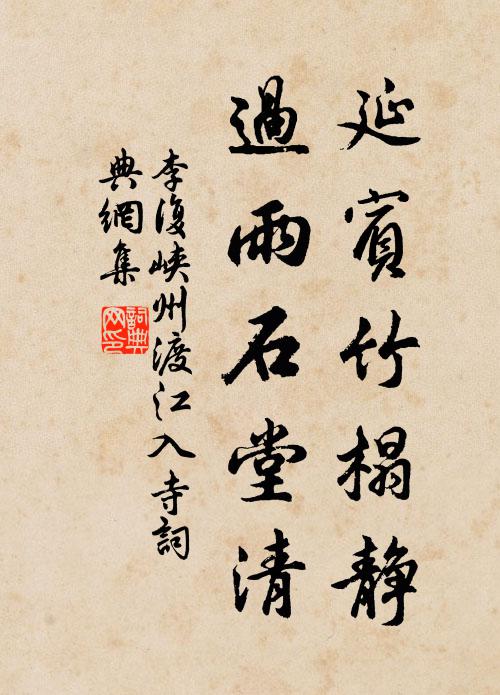 延賓竹榻靜
過雨石堂清
李復峽州渡江入寺詞
典網集
詞典网印